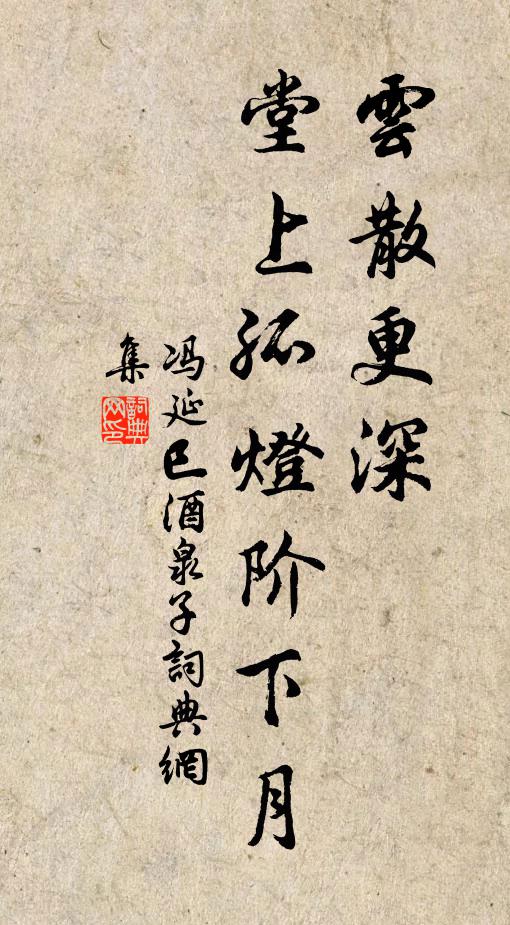 雲散更深
堂上孤燈阶下月
冯延巳酒泉子詞典網
集
詞典網印